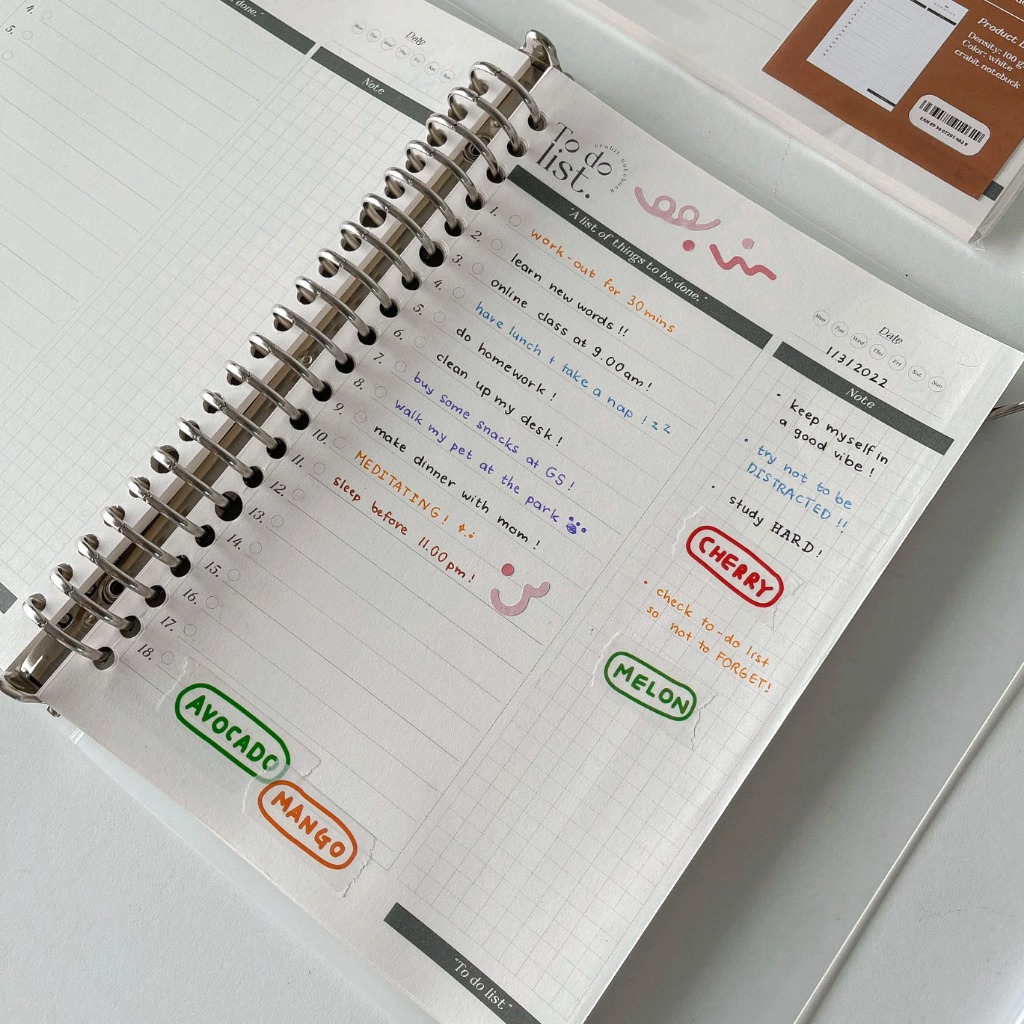 done."
4.
5.
Date
Mon Tue Wed Thu Fri Sat Sun
Note
Product
Density: 100 g
Color: white
crabit notebuck
To do
list.
crabit notebuck
"A list of things to be done."
1. work-out for 30 mins
2. learn new words !!
3. online class at 9.00 am!
4. have lunch + take a nap ! z z
5. do homework !
6. clean up my desk !
7. buy some snacks at GS !
8. walk my pet at the park
9. make dinner with mom !
10. MEDITATING !
11. sleep before 11.00 pm!
12.
13.
14.
15.
16.
17.
18.
Date
Mon Tue Wed Thu Fri Sat Sun
1/3/2022
Note
• keep myself in
a good vibe !
• try not to be
DISTRACTED !!
• study HARD!
CHERRY
• check to-do list
so not to FORGET!
MELON
AVOCADO
MANGO
"To do list"